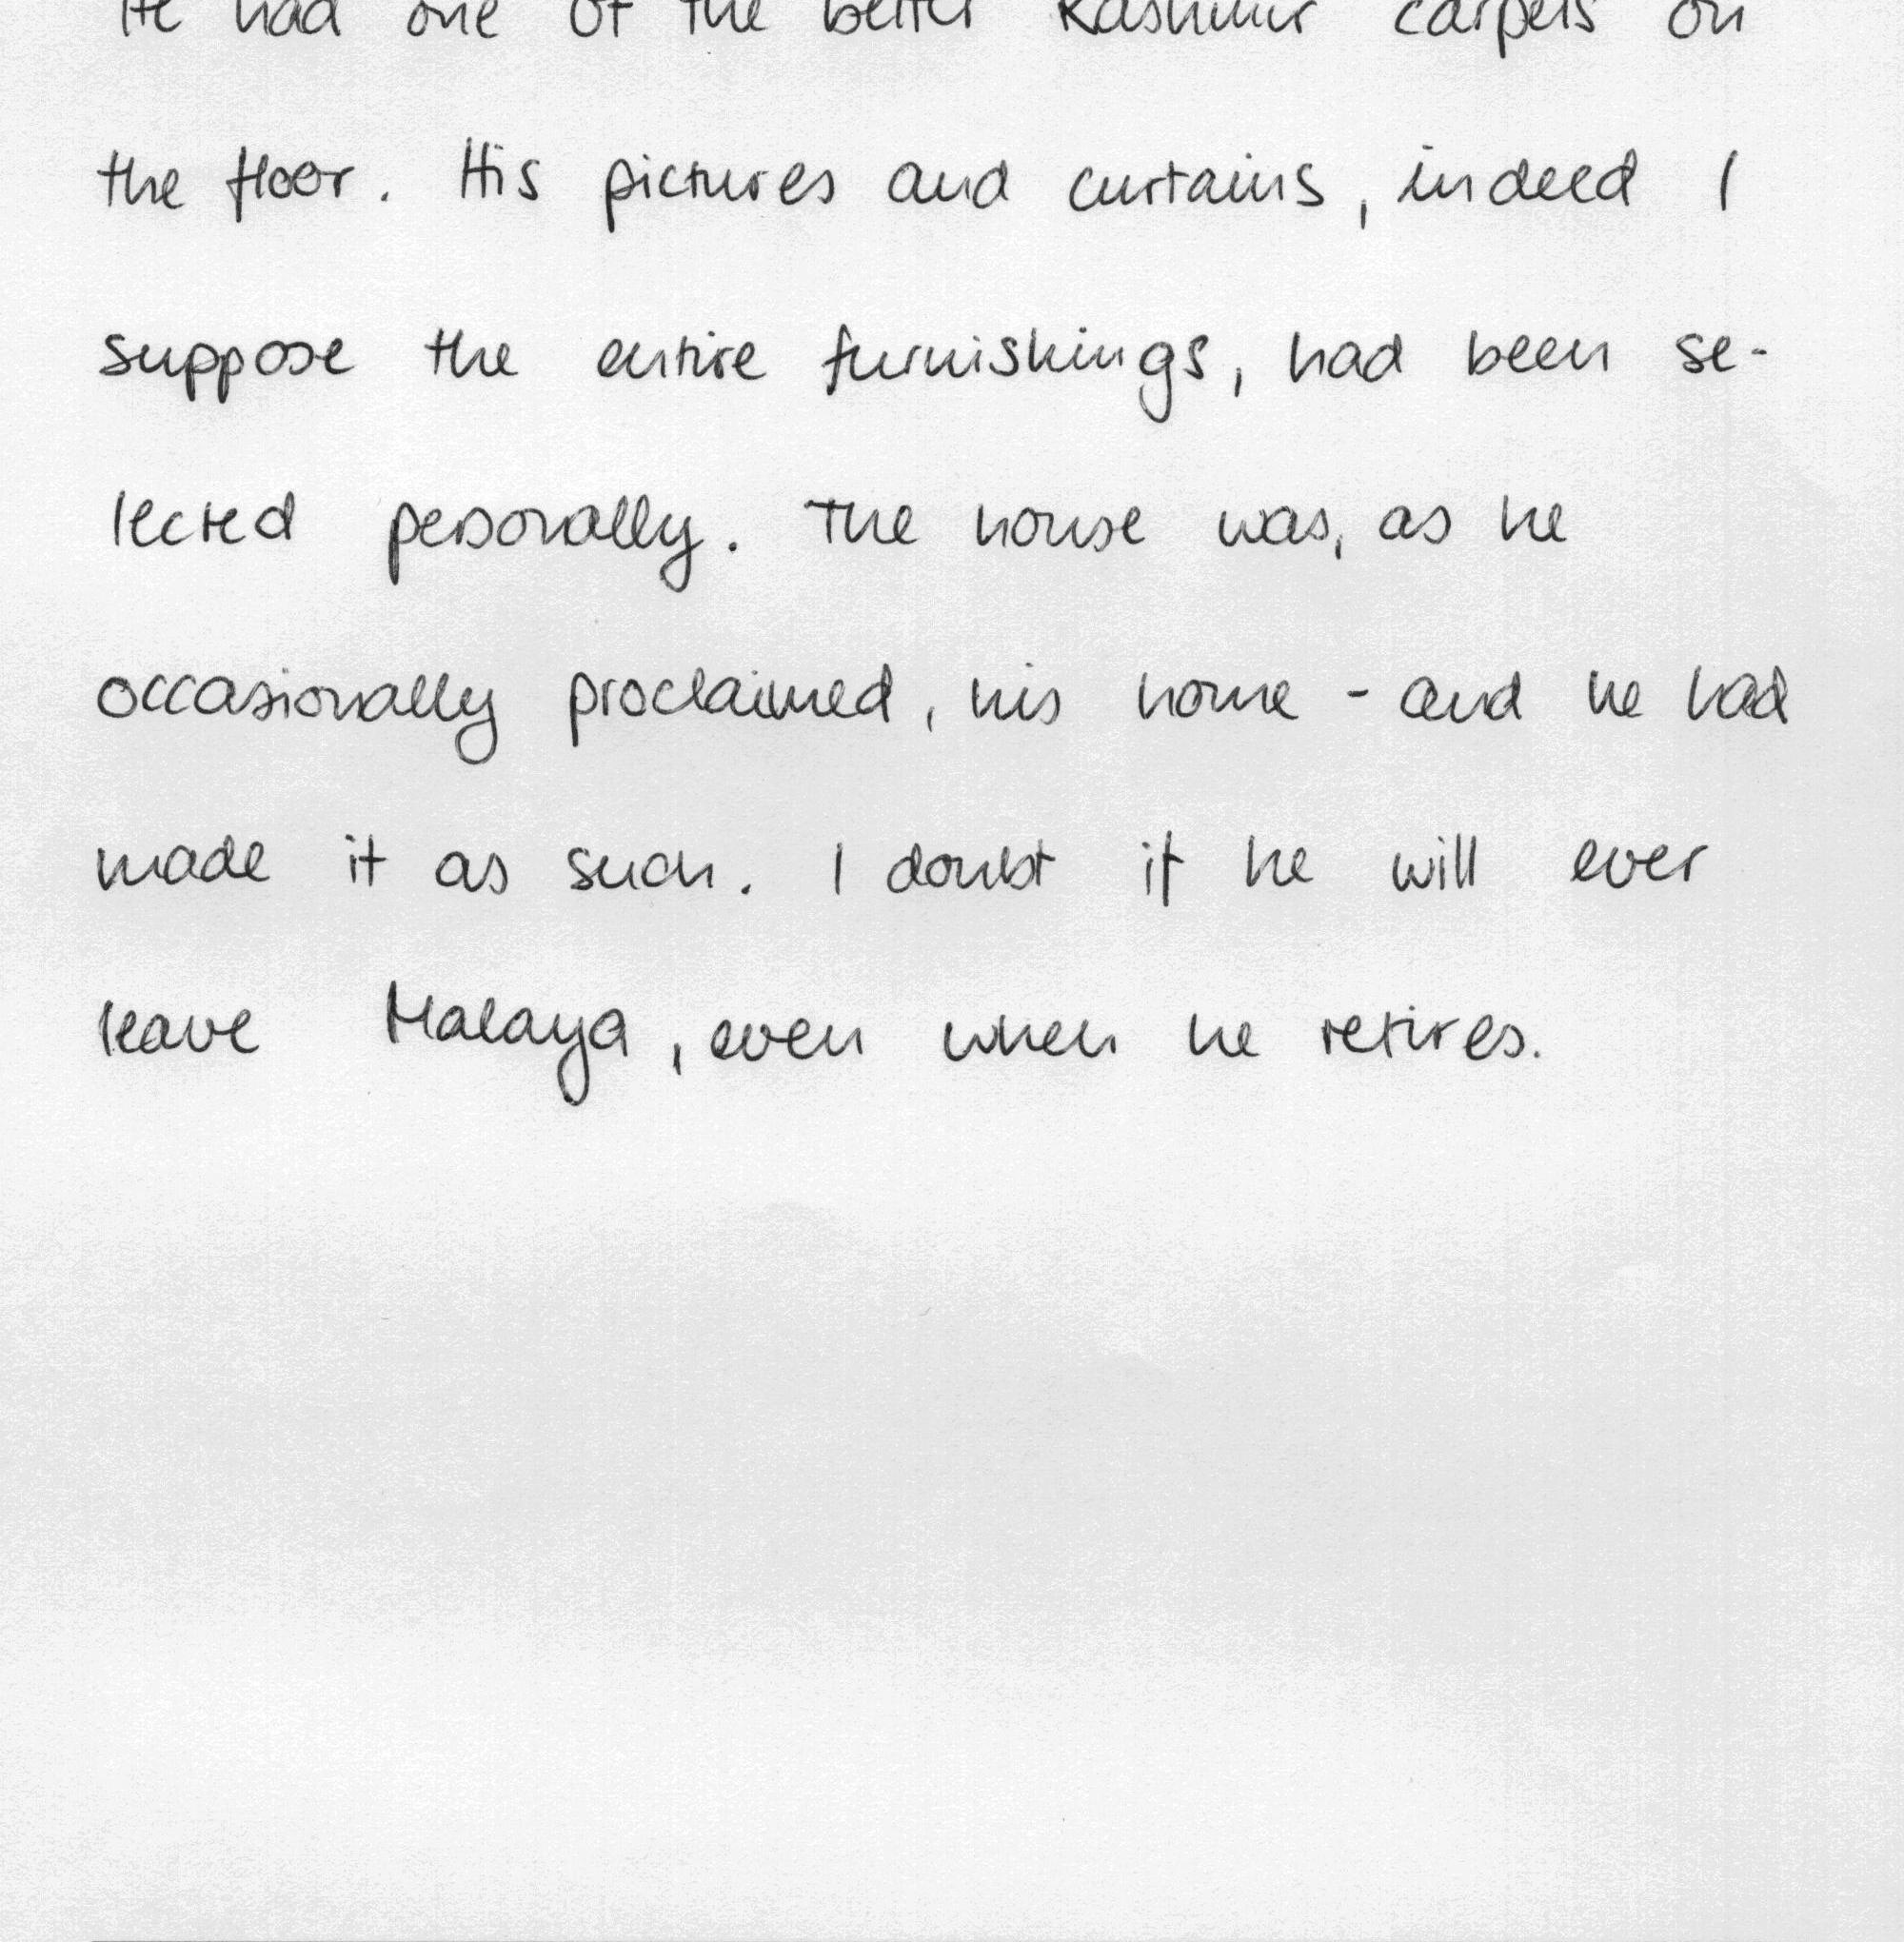 He had one of the better Kashmir carpets on
the floor. His pictures and curtains, indeed I
suppose the entire furnishings, had been se-
lected personally. The house was, as he
occasionally proclaimed, his home - and he had
made it as such. I doubt if he will ever
leave Malaya, even when he retires.